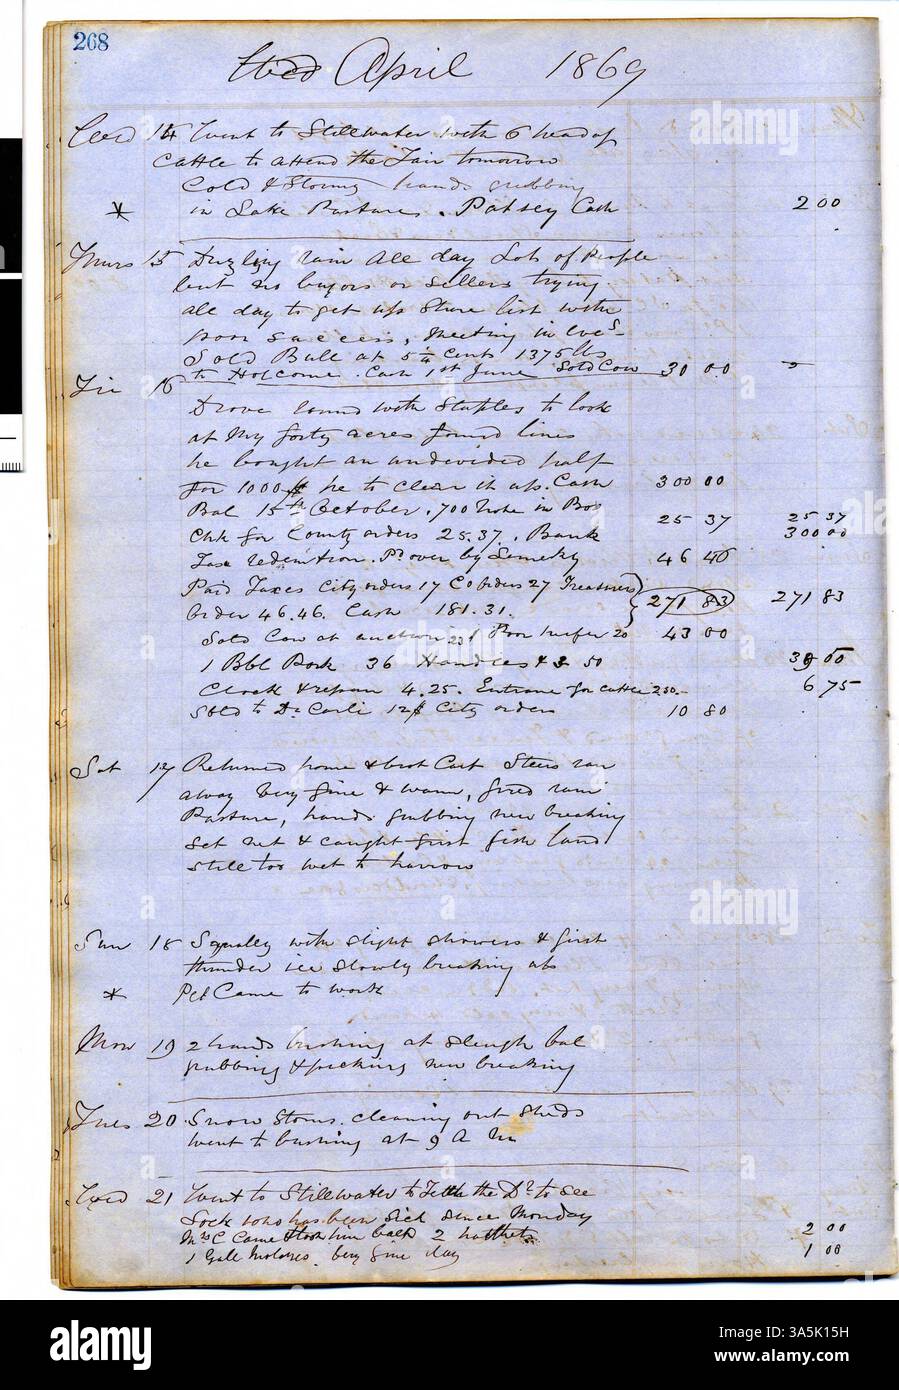 268
Wed April 1869
Wed 14 Went to Stillwater with 6 head of
Cattle to attend the Fair tomorrow
Cold & Stormy hands grubbing
* in Lake Pasture. Patsey Cash 2 00
Thurs 15 Drizling rain all day Lots of People
but no buyors or Sellers trying
all day to get up Sture list with
poor success, Meeting in Eve
Sold Bull at 5 1/4 Cents 1375 lbs
to Holcome. Cash 1st June Sold Cow 30 00
Fri 16
Drove round with Staples to look
at My forty acres found lines
he bought an undivided half
for 1000 $ he to clear it up. Cash 300 00
Bal 15th October. 700 in
Chk for County orders 25.37. Bank 25 37 25 37
300 00
Tax redemtion. P over by 46 46
Paid Taxes City orders 17 Co orders 27 Treasurers
order 46.46. Cash 181.31. 271 83 271 83
Sold Cow at auction 23 & Poor heifer 20 43 00
1 Bbl Pork 36 Handles & 3 50 39 50
Clock & repair 4.25. Entrance for cattle 2.50 6 75
Sold to Dr Carli 12$ City orders 10 80
Sat 17 Returned home & brot Cart Steers ran
away very fine & warm, fired rain
Pasture, hands grubbing new breaking
Set net & caught first fish land
still too wet to harrow
Sun 18 Squally with slight showers & first
thunder ice slowly breaking up
* Pet Came to work
Mon 19 2 hands brushing at Slough bal
grubbing & picking new breaking
Tues 20 Snow Storm. cleaning out Sheds
went to brushing at 9 A M
Wed 21 Went to Stillwater to the Dr to see
Sock who has been Sick Since Monday
Mrs C Came & took him back 2 hatchets 2 00
1 Gall Molases. very fine day 1 00
alamy
alamy
alamy
alamy
alamy
alamy
alamy
Image ID: 3A5K15H
www.alamy.com